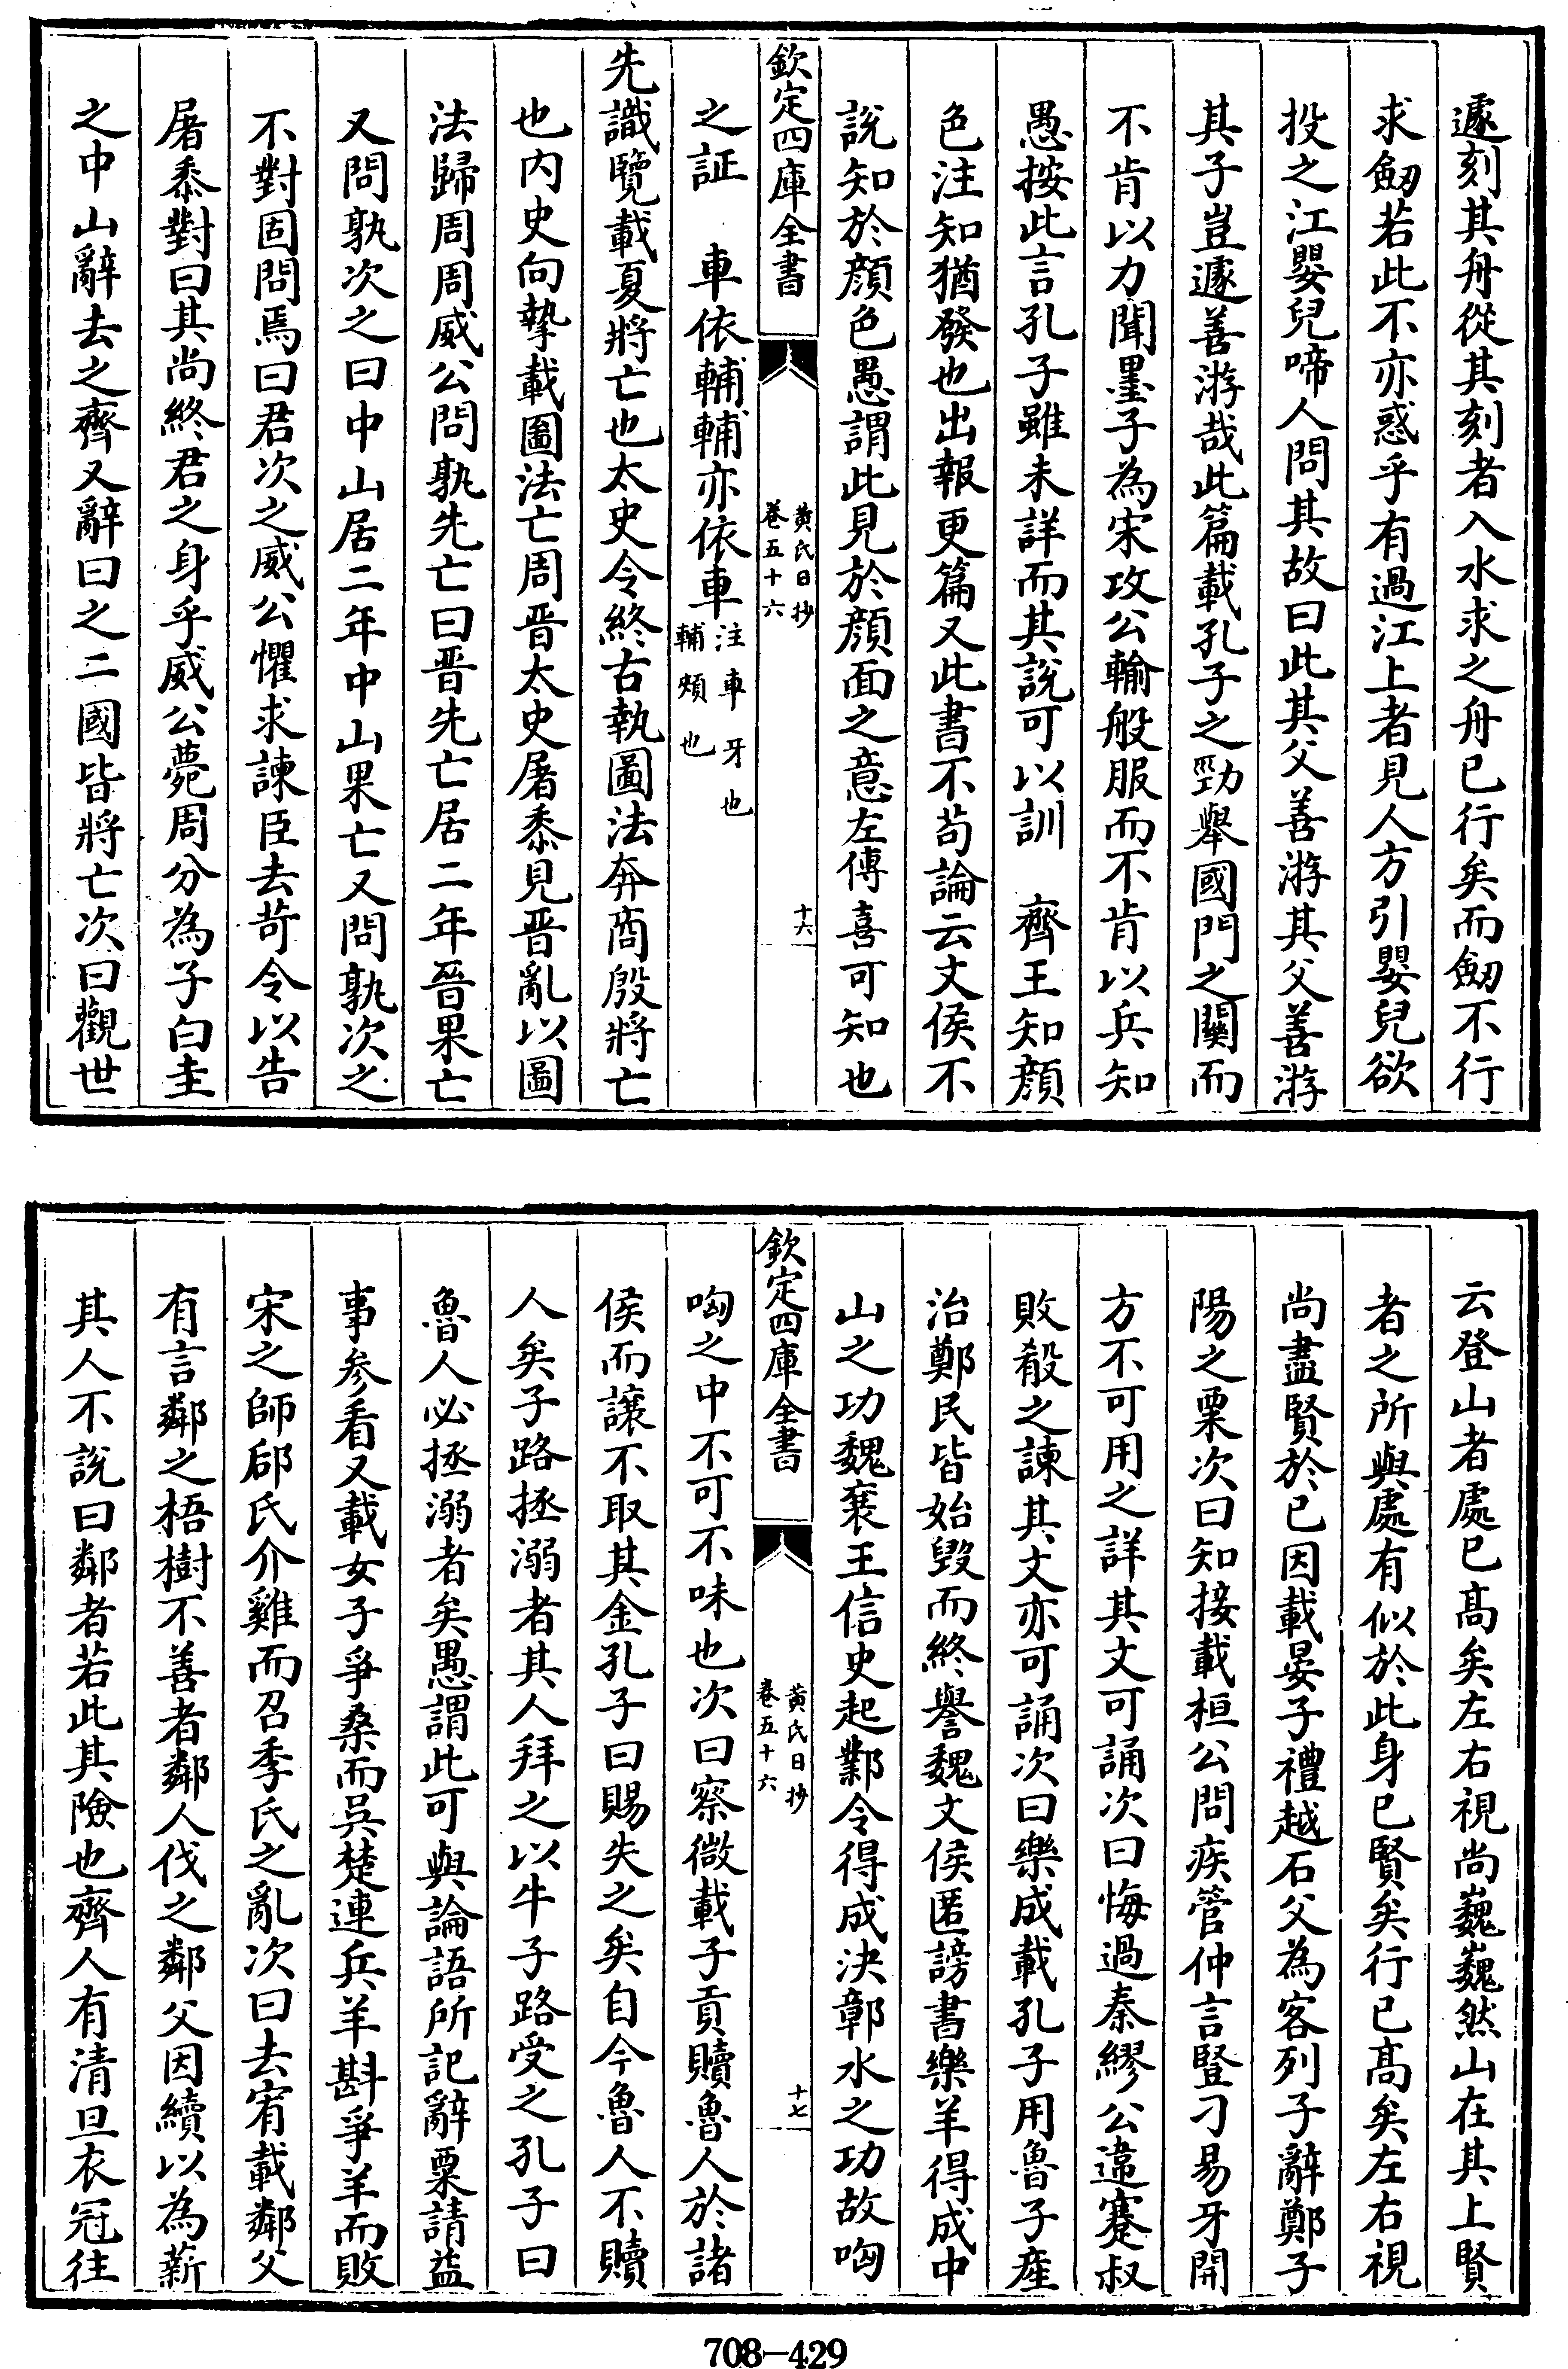 遽刻其舟從其刻者入水求之舟已行矣而劒不行
求劒若此不亦惑乎有過江上者見人方引嬰兒欲
投之江嬰兒啼人問其故曰此其父善游其父善游
其子豈遽善游哉此篇載孔子之勁舉國門之關而
不肯以力聞墨子為宋攻公輸般服而不肯以兵知
愚按此言孔子雖未詳而其說可以訓　齊王知顔
色注知猶發也出報更篇又此書不苟論云文侯不
說知於顔色愚謂此見於顔面之意左傳喜可知也
欽定四庫全書
黄氏日抄
卷五十六
十六
之証　車依輔輔亦依車注車牙也
輔頰也
先識覽載夏將亡也太史令終古執圖法奔商殷將亡
也内史向摯載圖法亡周晋太史屠黍見晋亂以圖
法歸周周威公問孰先亡曰晋先亡居二年晉果亡
又問孰次之曰中山居二年中山果亡又問孰次之
不對固問焉曰君次之威公懼求諫臣去苛令以告
屠黍對曰其尚終君之身乎威公薨周分為子白圭
之中山辭去之齊又辭曰之二國皆將亡次曰觀世
云登山者處已髙矣左右視尚巍巍然山在其上賢
者之所與處有似於此身已賢矣行已髙矣左右視
尚盡賢於已因載晏子禮越石父為客列子辭鄭子
陽之粟次曰知接載桓公問疾管仲言豎刁易牙開
方不可用之詳其文可誦次曰悔過秦繆公違蹇叔
敗殽之諫其文亦可誦次曰樂成載孔子用魯子産
治鄭民皆始毀而終譽魏文侯匿謗書樂羊得成中
山之功魏襄王信史起鄴令得成決鄣水之功故㕼
欽定四庫全書
黄氏日抄
卷五十六
十七
㕼之中不可不味也次曰察微載子貢贖魯人於諸
侯而讓不取其金孔子曰賜失之矣自今魯人不贖
人矣子路拯溺者其人拜之以牛子路受之孔子曰
魯人必拯溺者矣愚謂此可與論語所記辭粟請益
事參看又載女子爭桑而吳楚連兵羊斟爭羊而敗
宋之師郈氏介雞而召季氏之亂次曰去宥載鄰父
有言鄰之梧樹不善者鄰人伐之鄰父因續以為薪
其人不說曰鄰者若此其險也齊人有清旦衣冠往
708-429